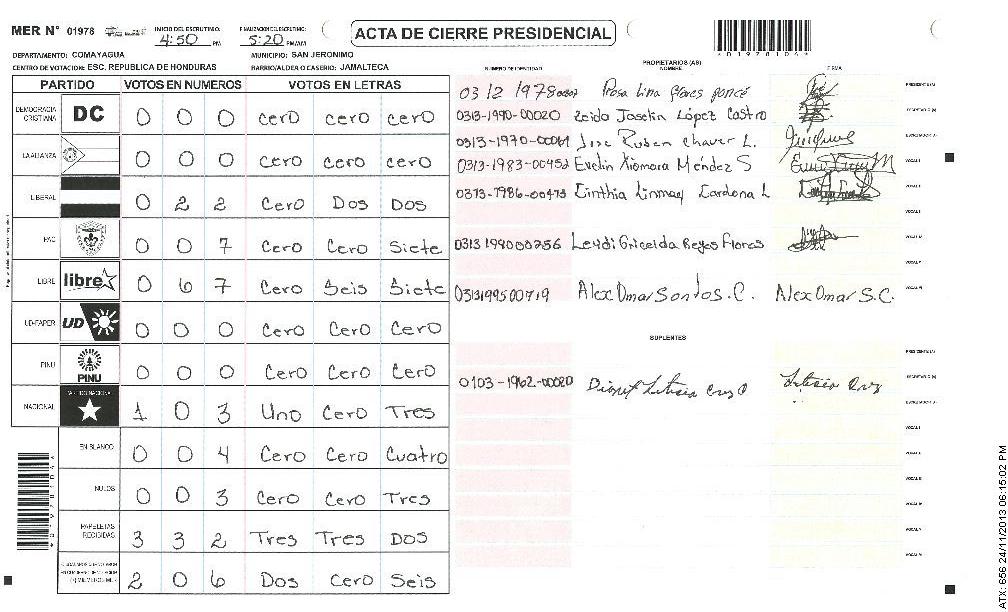 MER N° 01978
INICIO DEL ESCRUTINIO: 4:50 PM
FINALIZACION DEL ESCRUTINIO: 5:20 PM/AM
ACTA DE CIERRE PRESIDENCIAL
*01978104*
DEPARTAMENTO: COMAYAGUA MUNICIPIO: SAN JERONIMO
CENTRO DE VOTACION: ESC. REPUBLICA DE HONDURAS BARRIO/ALDEA O CASERIO: JAMALTECA
PARTIDO VOTOS EN NUMEROS VOTOS EN LETRAS
DEMOCRACIA CRISTIANA DC 0 0 0 cero cero cero
LA ALIANZA 0 0 0 cero cero cero
LIBERAL 0 2 2 Cero Dos Dos
PAC 0 0 7 Cero Cero Siete
LIBRE libre 0 6 7 Cero Seis Siete
UD-FAPER UD 0 0 0 Cero Cero Cero
PINU PINU 0 0 0 Cero Cero Cero
NACIONAL PARTIDO NACIONAL 1 0 3 Uno Cero Tres
EN BLANCO 0 0 4 Cero Cero Cuatro
NULOS 0 0 3 Cero Cero Tres
PAPELETAS RECIBIDAS 3 3 2 Tres Tres Dos
2 0 6 Dos Cero Seis
PROPIETARIOS (AS)
NUMERO DE IDENTIDAD NOMBRE FIRMA
Rosa Lina flores ponce PRESIDENTE (A)
0313-1990-00020 Zeida Joselin López Castro SECRETARIO (A)
Jose Ruben Chaver L. ESCRUTADOR (A)
0313-1983-00452 Evelin Xiomara Méndez S VOCAL I
Cinthia Linmay Cardona L VOCAL II
VOCAL III
Leydi Gricelda Reyes Flores VOCAL IV
VOCAL V
0313199500719 Alex Omar Santos. C. Alex Omar S.C. VOCAL VI
SUPLENTES
PRESIDENTE (A)
0103-1962-00020 Letisia Cruz SECRETARIO (A)
ESCRUTADOR (A)
VOCAL I
VOCAL II
VOCAL III
VOCAL IV
VOCAL V
VOCAL VI
ATX: 656 24/11/2013 06:15:02 PM